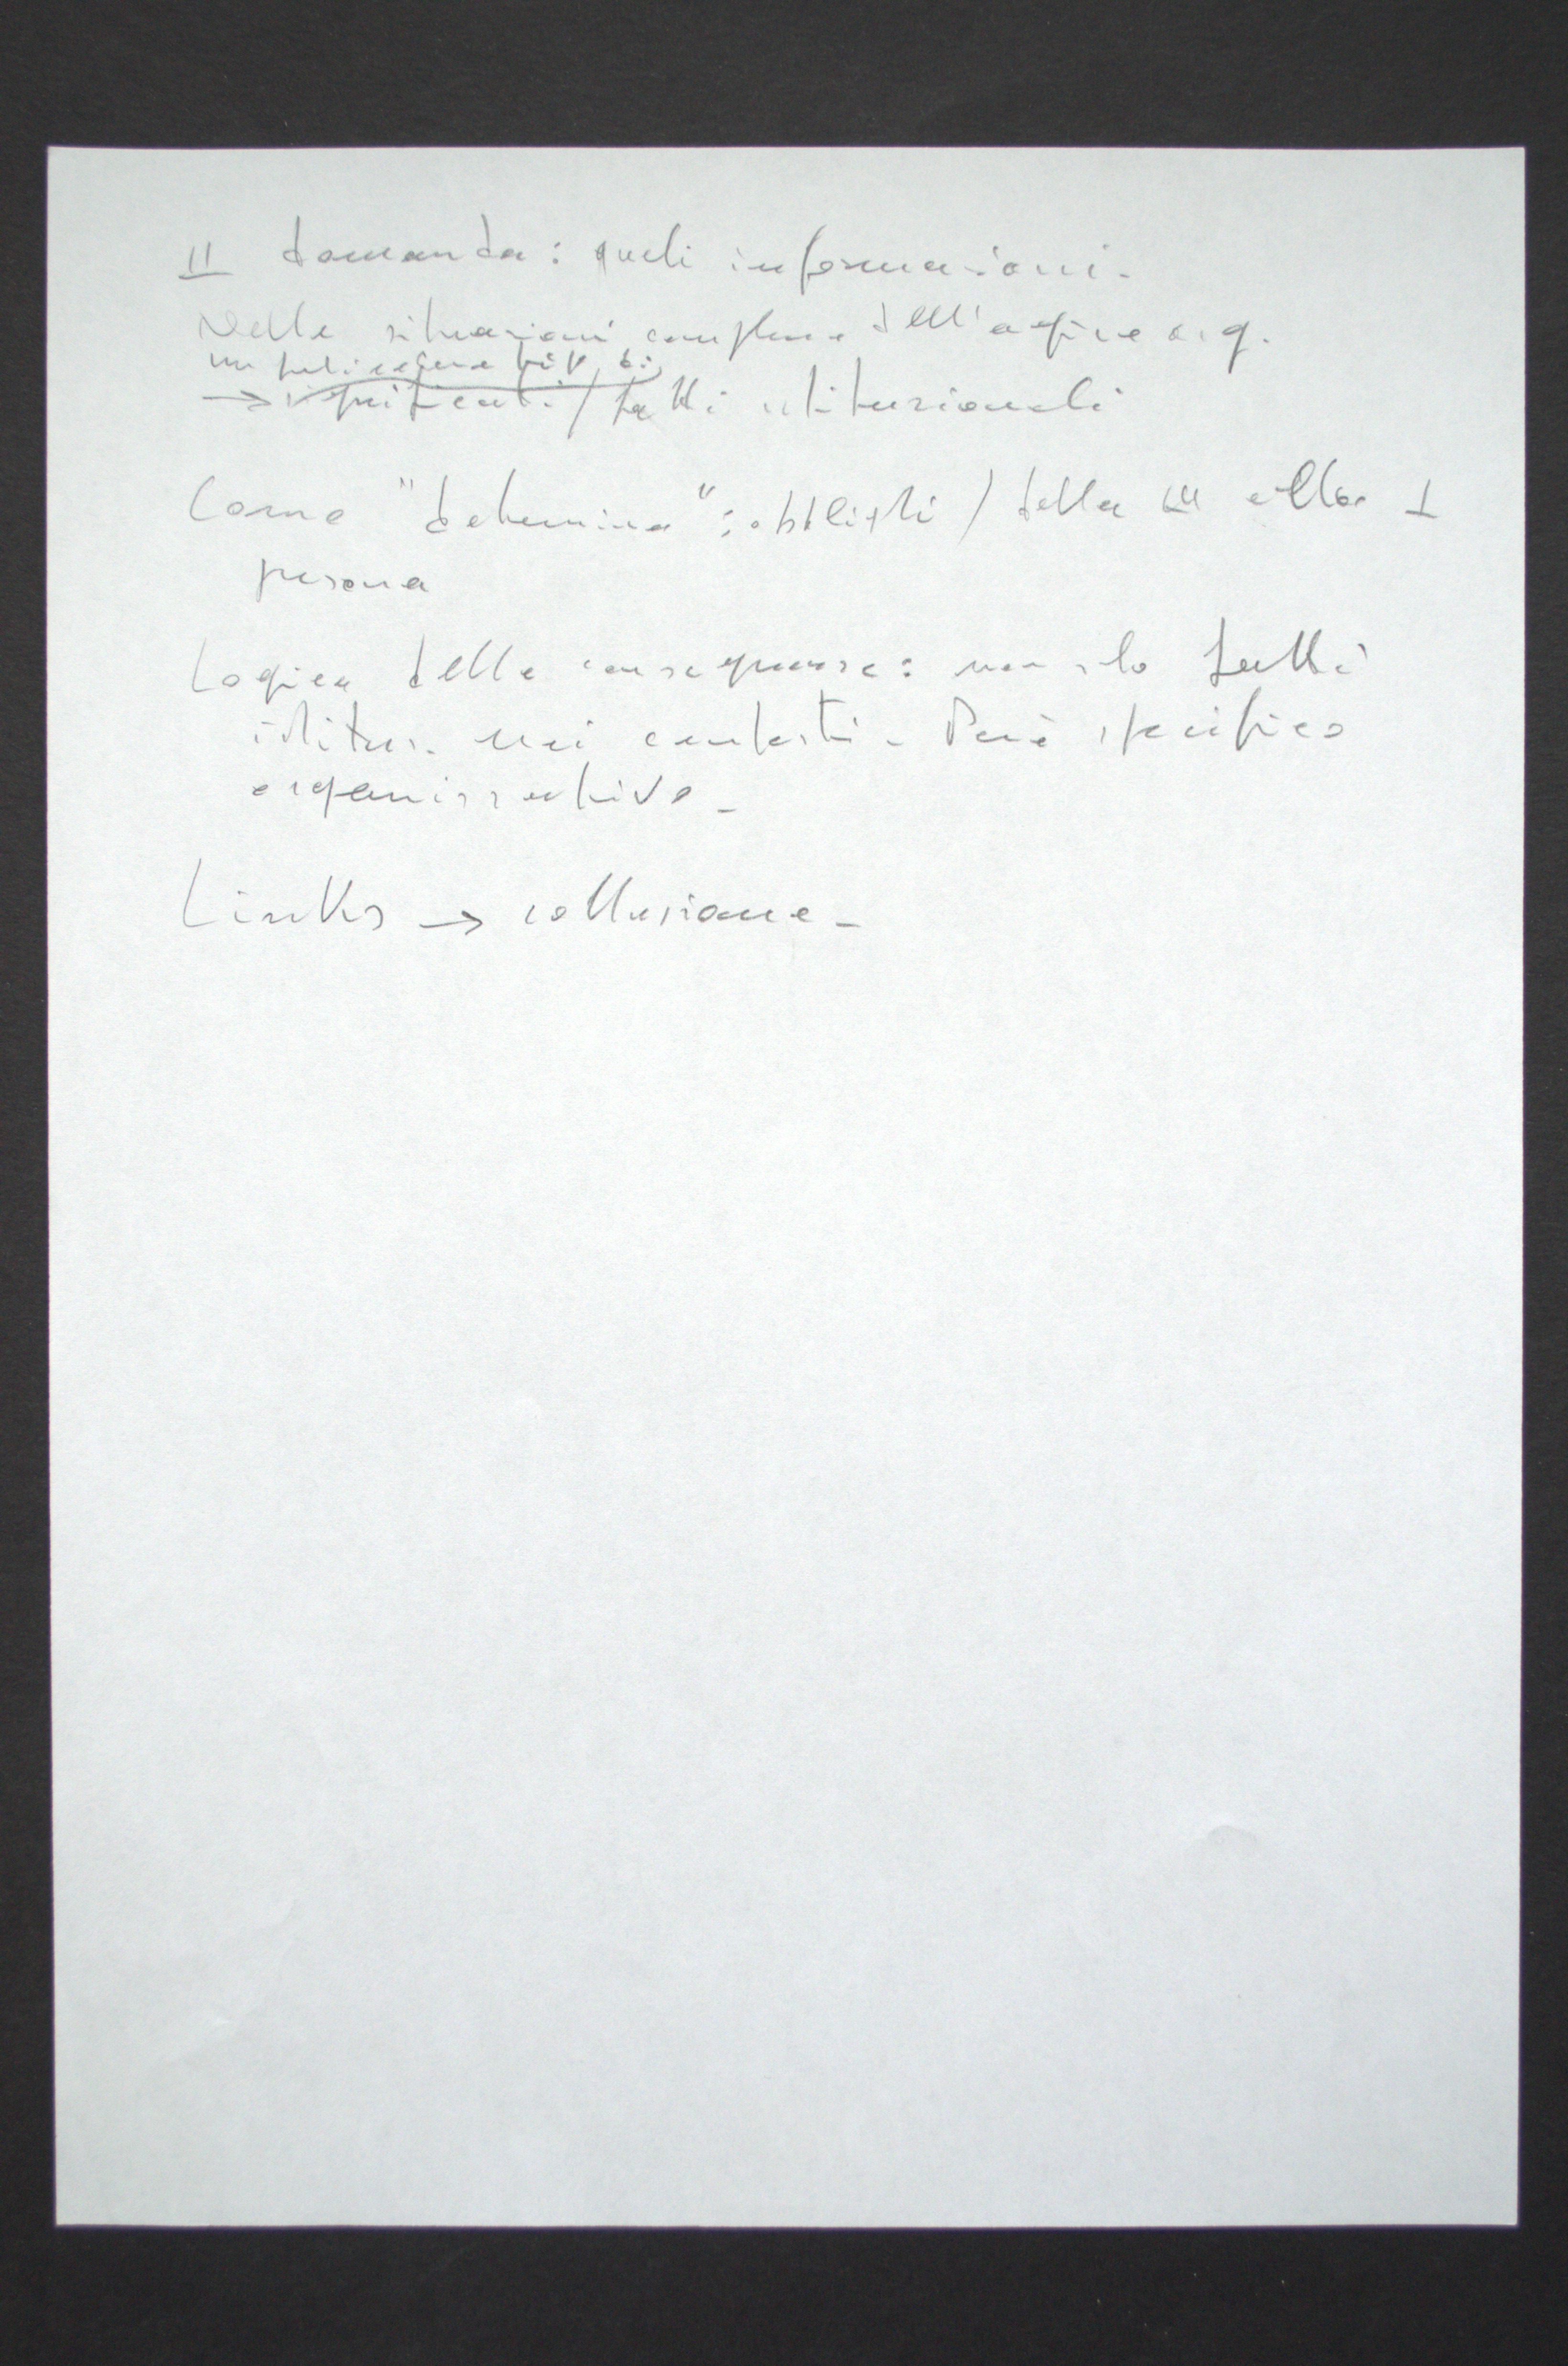 II domanda: quali informazioni.
Nelle situazioni complesse dell'agire org.
un tipo di
→ significati / fatti istituzionali
Come "determina": obblighi / dalla III alla I
persona
Logica delle conseguenze: non solo fatti
istituz. nei contesti - Però specifico
organizzativo -
Links → collusione -